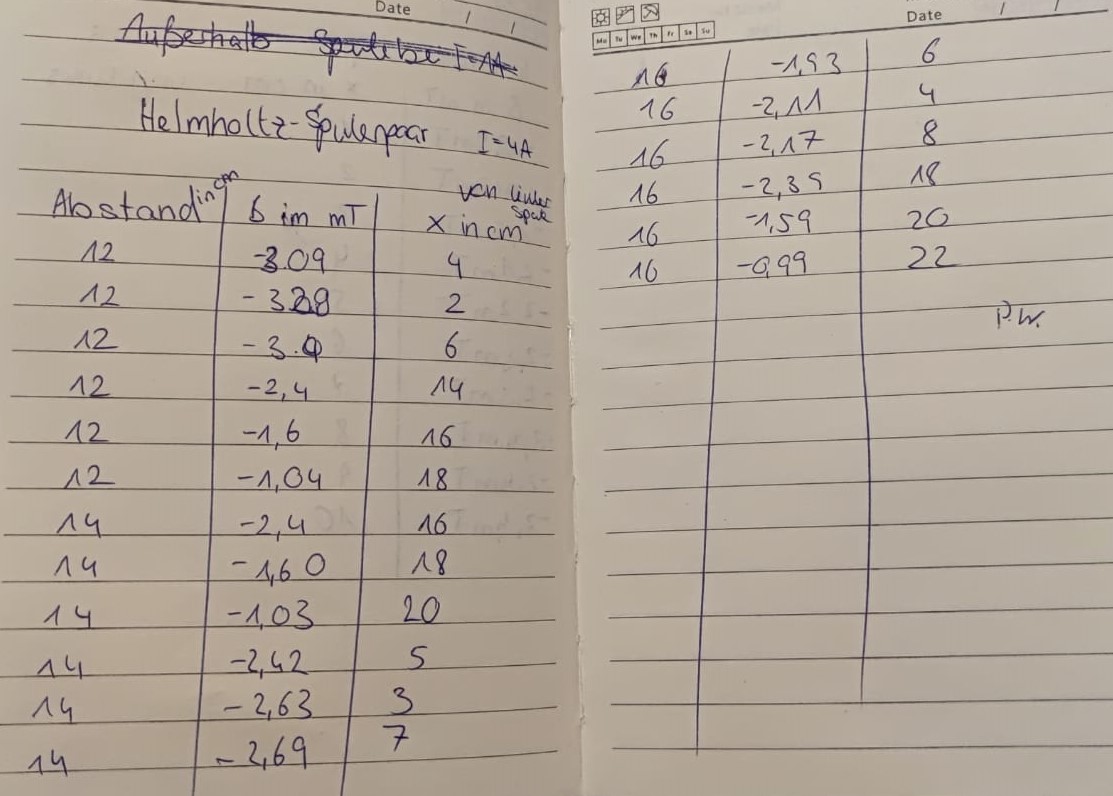 Date / /
Außerhalb Spule bei I=1A
Helmholtz-Spulenpaar I=4A
Abstand in cm | B in mT | von linker Spule x in cm
12 | -3.09 | 4
12 | | 2
12 | | 6
12 | -2,4 | 14
12 | -1,6 | 16
12 | -1,04 | 18
14 | -2,4 | 16
14 | -1,60 | 18
14 | -1,03 | 20
14 | -2,42 | 5
14 | -2,63 | 3
14 | -2,69 | 7
Date / /
Mo Tu We Th Fr Sa Su
16 | -1,93 | 6
16 | -2,11 | 4
16 | -2,17 | 8
16 | | 18
16 | -1,59 | 20
16 | -0,99 | 22
P.W.